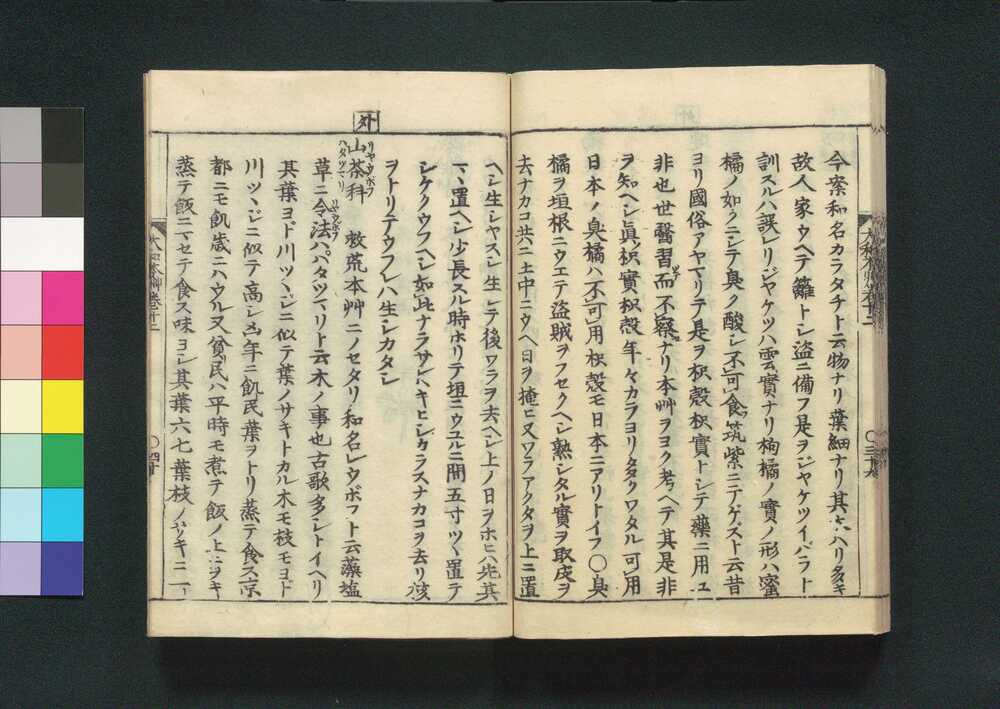 今案和名カラタチト云物ナリ葉細ナリ其木ハリ多キ
故人家ウヘテ籬トシ盗ニ備フ是ヲジヤケツイバラト
訓スルハ誤レリジヤケツハ雲實ナリ枸橘ノ實ノ形ハ蜜
橘ノ如クニシテ臭ク酸シ不可食筑紫ニテゲズト云昔
ヨリ國俗アヤマリテ是ヲ枳殻枳實トシテ藥ニ用ユ
非也世醫習而不察ナリ本艸ヲヨク考ヘテ其是非
ヲ知ヘシ眞枳實枳殻年々カラヨリ多クワタル可用
日本ノ臭橘ハ不可用枳殻モ日本ニアリトイフ〇臭
橘ヲ垣根ニウエテ盗賊ヲフセクヘシ熟シタル實ヲ取皮ヲ
去ナカコ共ニ土中ニウヘ日ヲ掩ヒ又ワラアクタヲ上ニ置
ヘシ生シヤスシ生シテ後ワラヲ去ヘシ上ノ日ヲホヒハ先其
マヽ置ヘシ少長スル時ホリテ垣ニウユルニ間五寸ツヽ置テ
シケクウフヘシ如此ナラサレハキヒシカラスナカコヲ去リ皮
ヲトリテウフレハ生シカタシ
外
山茶科 リヤウボフ ハタツマリ 救荒本艸ニノセタリ和名レウボフト云藻塩
草ニ令法ハハタツマリト云木ノ事也古歌多シトイヘリ
其葉ヨド川ツヽジニ似テ葉ノサキトカル木モ枝モヨド
川ツヽジニ似テ高シ凶年ニ飢民葉ヲトリ蒸テ食ス京
都ニモ飢歳ニハウル又貧民ハ平時モ煮テ飯ノ上ニヲキ
蒸テ飯ニマセテ食ス味ヨシ其葉六七葉枝ノサキニ一
大和本艸卷十二
〇三十九
大和本艸卷十二
〇四十